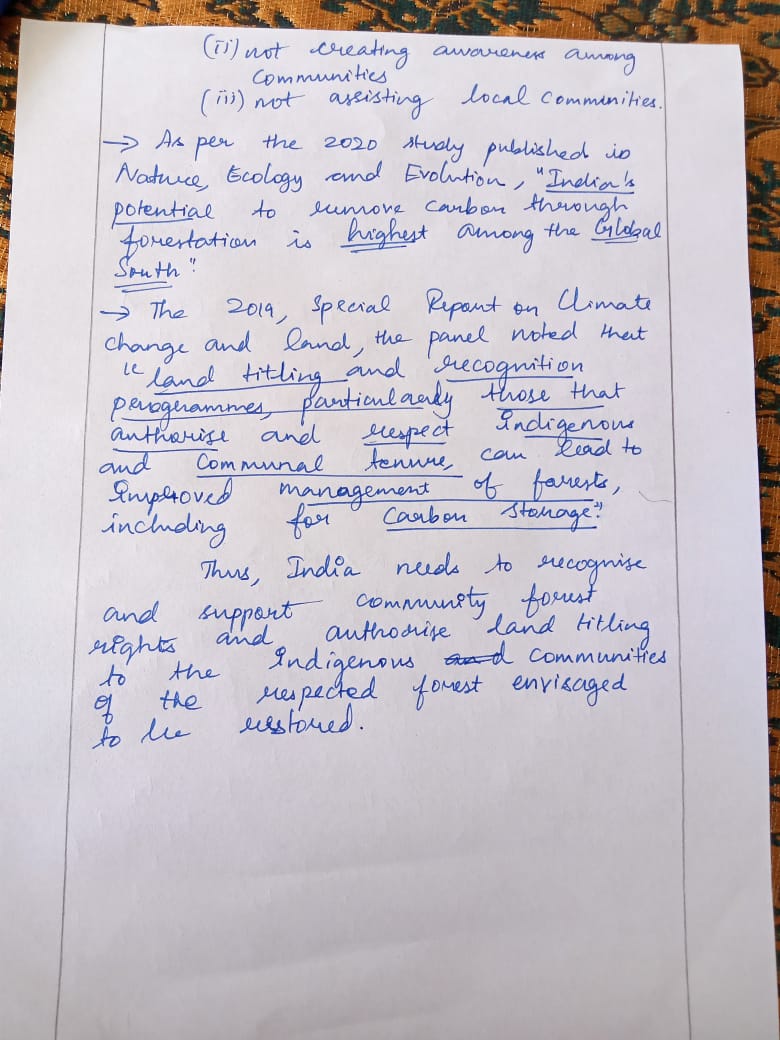 (ii) not creating awareness among
communities
(iii) not assisting local communities.
→ As per the 2020 study published in
Nature, Ecology and Evolution, "India's
potential to remove carbon through
forestation is highest among the Global
South"
→ The 2019, Special Report on Climate
change and land, the panel noted that
"land titling and recognition
programmes, particularly those that
authorise and respect Indigenous
and Communal tenure, can lead to
Improved management of forests,
including for Carbon Storage."
Thus, India needs to recognise
and support community forest
rights and authorise land titling
to the Indigenous and communities
of the respected forest envisaged
to be restored.